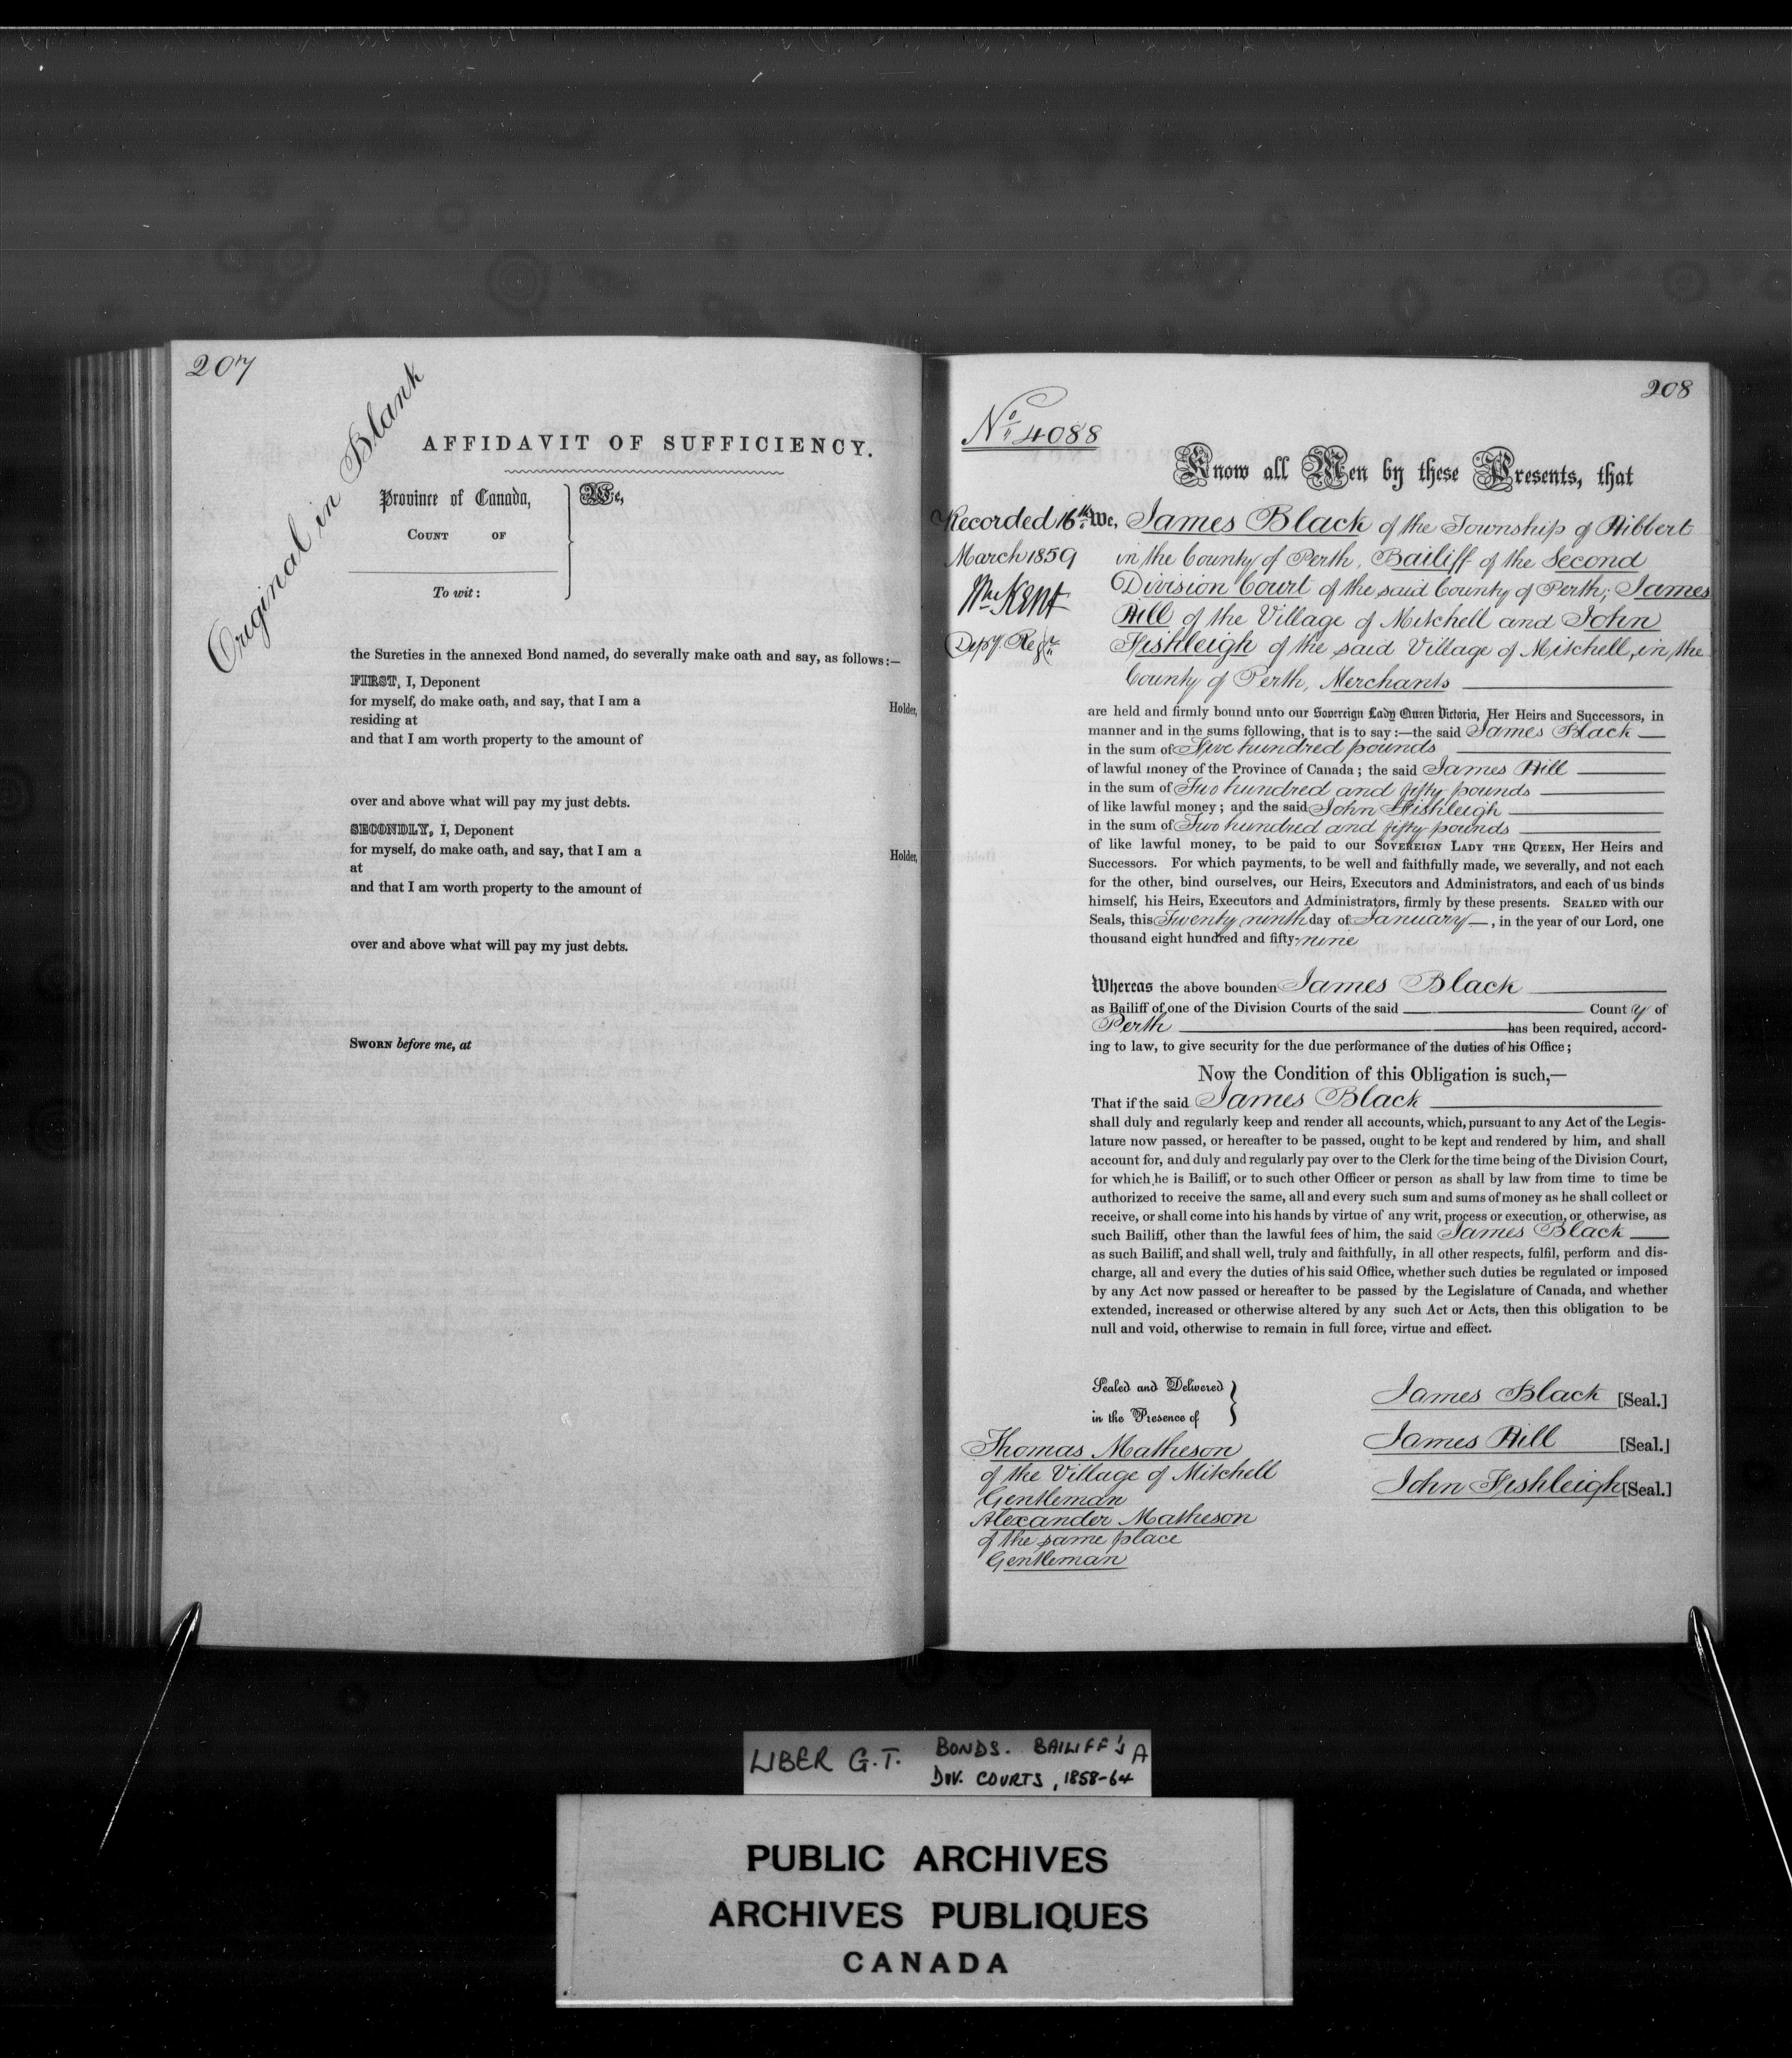 207
Original in Blank
AFFIDAVIT OF SUFFICIENCY.
Province of Canada,
COUNT OF
To wit:
We,
the Sureties in the annexed Bond named, do severally make oath and say, as follows:—
FIRST, I, Deponent
for myself, do make oath, and say, that I am a Holder,
residing at
and that I am worth property to the amount of
over and above what will pay my just debts.
SECONDLY, I, Deponent
for myself, do make oath, and say, that I am a Holder,
at
and that I am worth property to the amount of
over and above what will pay my just debts.
SWORN before me, at
208
No 4088
Know all Men by these Presents, that
Recorded 16th
March 1859
Wm Kent
Depy. Regr
We, James Black of the Township of Hibbert
in the County of Perth, Bailiff of the Second
Division Court of the said County of Perth; James
Hill of the Village of Mitchell and John
Fishleigh of the said Village of Mitchell, in the
County of Perth, Merchants
are held and firmly bound unto our Sovereign Lady Queen Victoria, Her Heirs and Successors, in
manner and in the sums following, that is to say:—the said James Black
in the sum of Five hundred pounds
of lawful money of the Province of Canada; the said James Hill
in the sum of Two hundred and fifty pounds
of like lawful money; and the said John Fishleigh
in the sum of Two hundred and fifty pounds
of like lawful money, to be paid to our SOVEREIGN LADY THE QUEEN, Her Heirs and
Successors. For which payments, to be well and faithfully made, we severally, and not each
for the other, bind ourselves, our Heirs, Executors and Administrators, and each of us binds
himself, his Heirs, Executors and Administrators, firmly by these presents. SEALED with our
Seals, this Twenty ninth day of January —, in the year of our Lord, one
thousand eight hundred and fifty-nine
Whereas the above bounden James Black
as Bailiff of one of the Division Courts of the said County of
Perth has been required, accord-
ing to law, to give security for the due performance of the duties of his Office;
Now the Condition of this Obligation is such,—
That if the said James Black
shall duly and regularly keep and render all accounts, which, pursuant to any Act of the Legis-
lature now passed, or hereafter to be passed, ought to be kept and rendered by him, and shall
account for, and duly and regularly pay over to the Clerk for the time being of the Division Court,
for which he is Bailiff, or to such other Officer or person as shall by law from time to time be
authorized to receive the same, all and every such sum and sums of money as he shall collect or
receive, or shall come into his hands by virtue of any writ, process or execution, or otherwise, as
such Bailiff, other than the lawful fees of him, the said James Black
as such Bailiff, and shall well, truly and faithfully, in all other respects, fulfil, perform and dis-
charge, all and every the duties of his said Office, whether such duties be regulated or imposed
by any Act now passed or hereafter to be passed by the Legislature of Canada, and whether
extended, increased or otherwise altered by any such Act or Acts, then this obligation to be
null and void, otherwise to remain in full force, virtue and effect.
Sealed and Delivered
in the Presence of
Thomas Matheson
of the Village of Mitchell
Gentleman
Alexander Matheson
of the same place
Gentleman
James Black [Seal.]
James Hill [Seal.]
John Fishleigh [Seal.]
LIBER G.T. BONDS. BAILIFF'S A
DIV. COURTS, 1858-64
PUBLIC ARCHIVES
ARCHIVES PUBLIQUES
CANADA